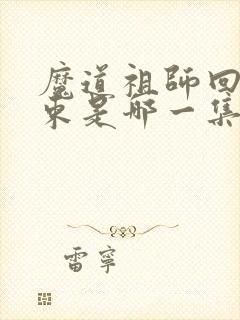 魔道祖師回
東是哪一集
雷寧